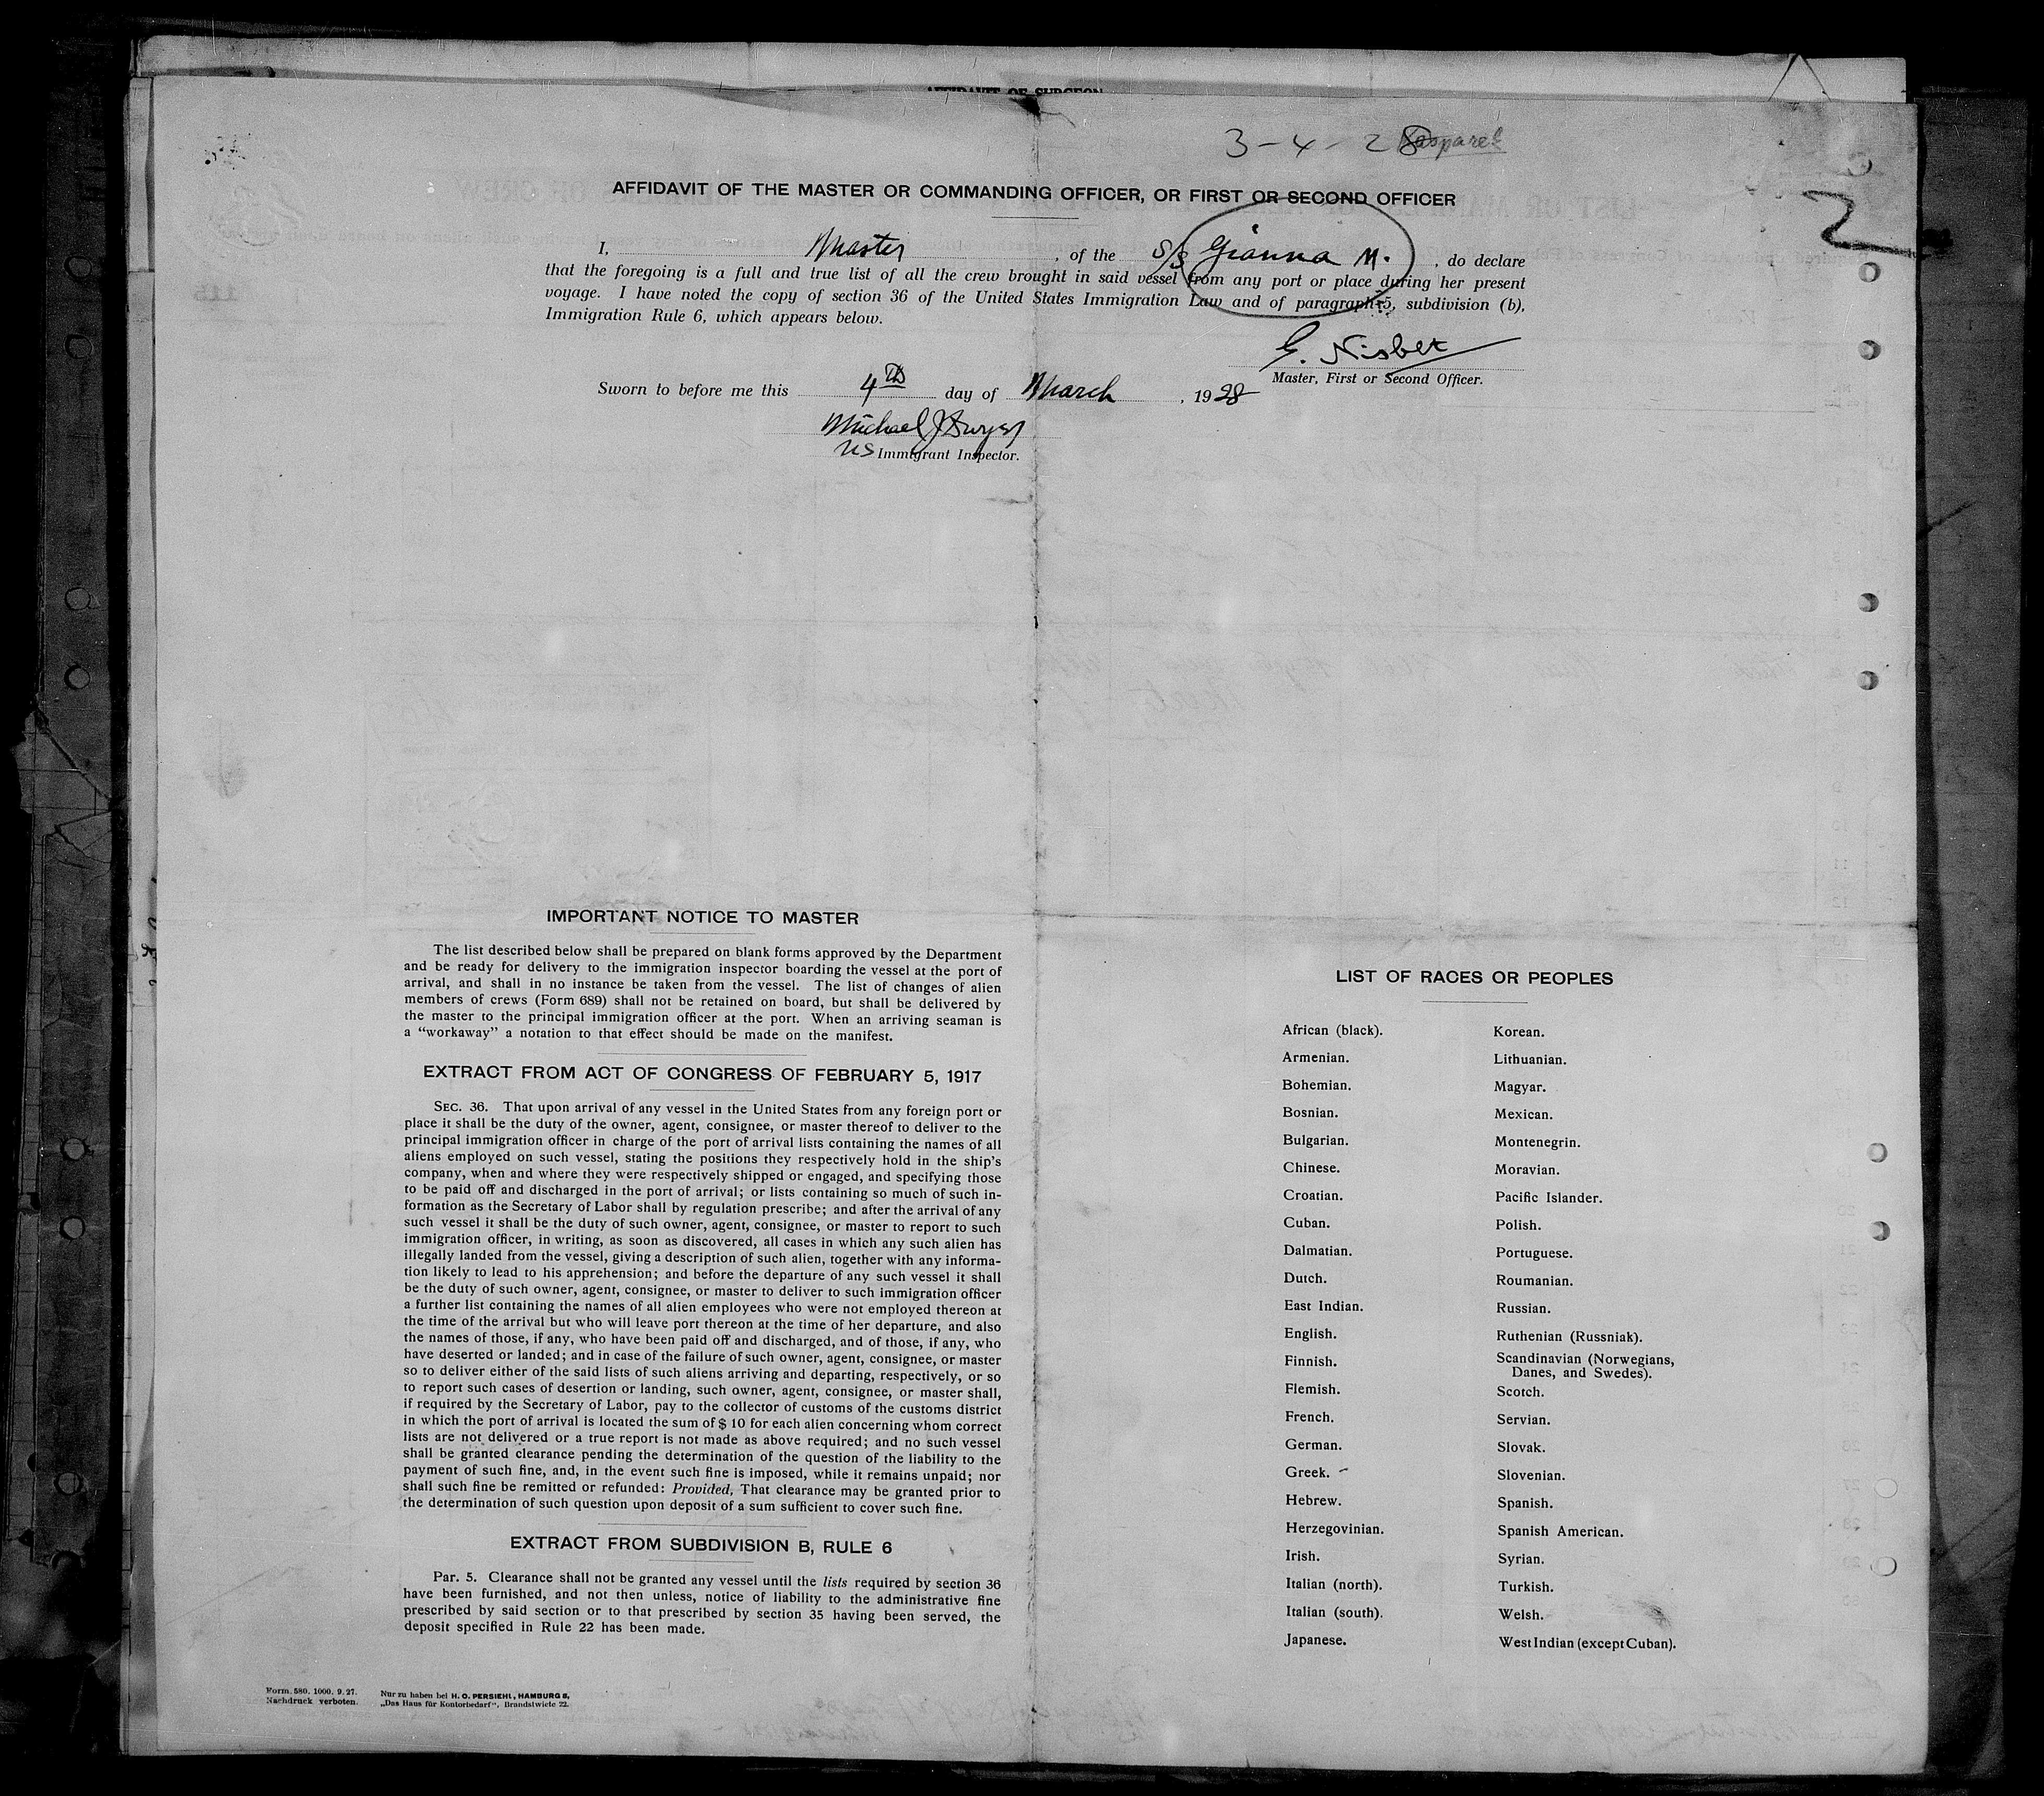 AFFIDAVIT OF SURGEON
3-4-28
AFFIDAVIT OF THE MASTER OR COMMANDING OFFICER, OR FIRST OR SECOND OFFICER
I, Master, of the S/S Gianna M., do declare
that the foregoing is a full and true list of all the crew brought in said vessel from any port or place during her present
voyage. I have noted the copy of section 36 of the United States Immigration Law and of paragraph 5, subdivision (b),
Immigration Rule 6, which appears below.
G. Nisbet
Master, First or Second Officer.
Sworn to before me this 4th day of March, 1928
Michael J Dwyer
US Immigrant Inspector.
IMPORTANT NOTICE TO MASTER
The list described below shall be prepared on blank forms approved by the Department
and be ready for delivery to the immigration inspector boarding the vessel at the port of
arrival, and shall in no instance be taken from the vessel. The list of changes of alien
members of crews (Form 689) shall not be retained on board, but shall be delivered by
the master to the principal immigration officer at the port. When an arriving seaman is
a "workaway" a notation to that effect should be made on the manifest.
EXTRACT FROM ACT OF CONGRESS OF FEBRUARY 5, 1917
SEC. 36. That upon arrival of any vessel in the United States from any foreign port or
place it shall be the duty of the owner, agent, consignee, or master thereof to deliver to the
principal immigration officer in charge of the port of arrival lists containing the names of all
aliens employed on such vessel, stating the positions they respectively hold in the ship's
company, when and where they were respectively shipped or engaged, and specifying those
to be paid off and discharged in the port of arrival; or lists containing so much of such in-
formation as the Secretary of Labor shall by regulation prescribe; and after the arrival of any
such vessel it shall be the duty of such owner, agent, consignee, or master to report to such
immigration officer, in writing, as soon as discovered, all cases in which any such alien has
illegally landed from the vessel, giving a description of such alien, together with any informa-
tion likely to lead to his apprehension; and before the departure of any such vessel it shall
be the duty of such owner, agent, consignee, or master to deliver to such immigration officer
a further list containing the names of all alien employees who were not employed thereon at
the time of the arrival but who will leave port thereon at the time of her departure, and also
the names of those, if any, who have been paid off and discharged, and of those, if any, who
have deserted or landed; and in case of the failure of such owner, agent, consignee, or master
so to deliver either of the said lists of such aliens arriving and departing, respectively, or so
to report such cases of desertion or landing, such owner, agent, consignee, or master shall,
if required by the Secretary of Labor, pay to the collector of customs of the customs district
in which the port of arrival is located the sum of $ 10 for each alien concerning whom correct
lists are not delivered or a true report is not made as above required; and no such vessel
shall be granted clearance pending the determination of the question of the liability to the
payment of such fine, and, in the event such fine is imposed, while it remains unpaid; nor
shall such fine be remitted or refunded: Provided, That clearance may be granted prior to
the determination of such question upon deposit of a sum sufficient to cover such fine.
EXTRACT FROM SUBDIVISION B, RULE 6
Par. 5. Clearance shall not be granted any vessel until the lists required by section 36
have been furnished, and not then unless, notice of liability to the administrative fine
prescribed by said section or to that prescribed by section 35 having been served, the
deposit specified in Rule 22 has been made.
LIST OF RACES OR PEOPLES
African (black).
Armenian.
Bohemian.
Bosnian.
Bulgarian.
Chinese.
Croatian.
Cuban.
Dalmatian.
Dutch.
East Indian.
English.
Finnish.
Flemish.
French.
German.
Greek.
Hebrew.
Herzegovinian.
Irish.
Italian (north).
Italian (south).
Japanese.
Korean.
Lithuanian.
Magyar.
Mexican.
Montenegrin.
Moravian.
Pacific Islander.
Polish.
Portuguese.
Roumanian.
Russian.
Ruthenian (Russniak).
Scandinavian (Norwegians,
Danes, and Swedes).
Scotch.
Servian.
Slovak.
Slovenian.
Spanish.
Spanish American.
Syrian.
Turkish.
Welsh.
West Indian (except Cuban).
Form. 580. 1000. 9. 27.
Nachdruck verboten.
Nur zu haben bei H. O. PERSIEHL, HAMBURG 8,
„Das Haus für Kontorbedarf", Brandstwiete 22.